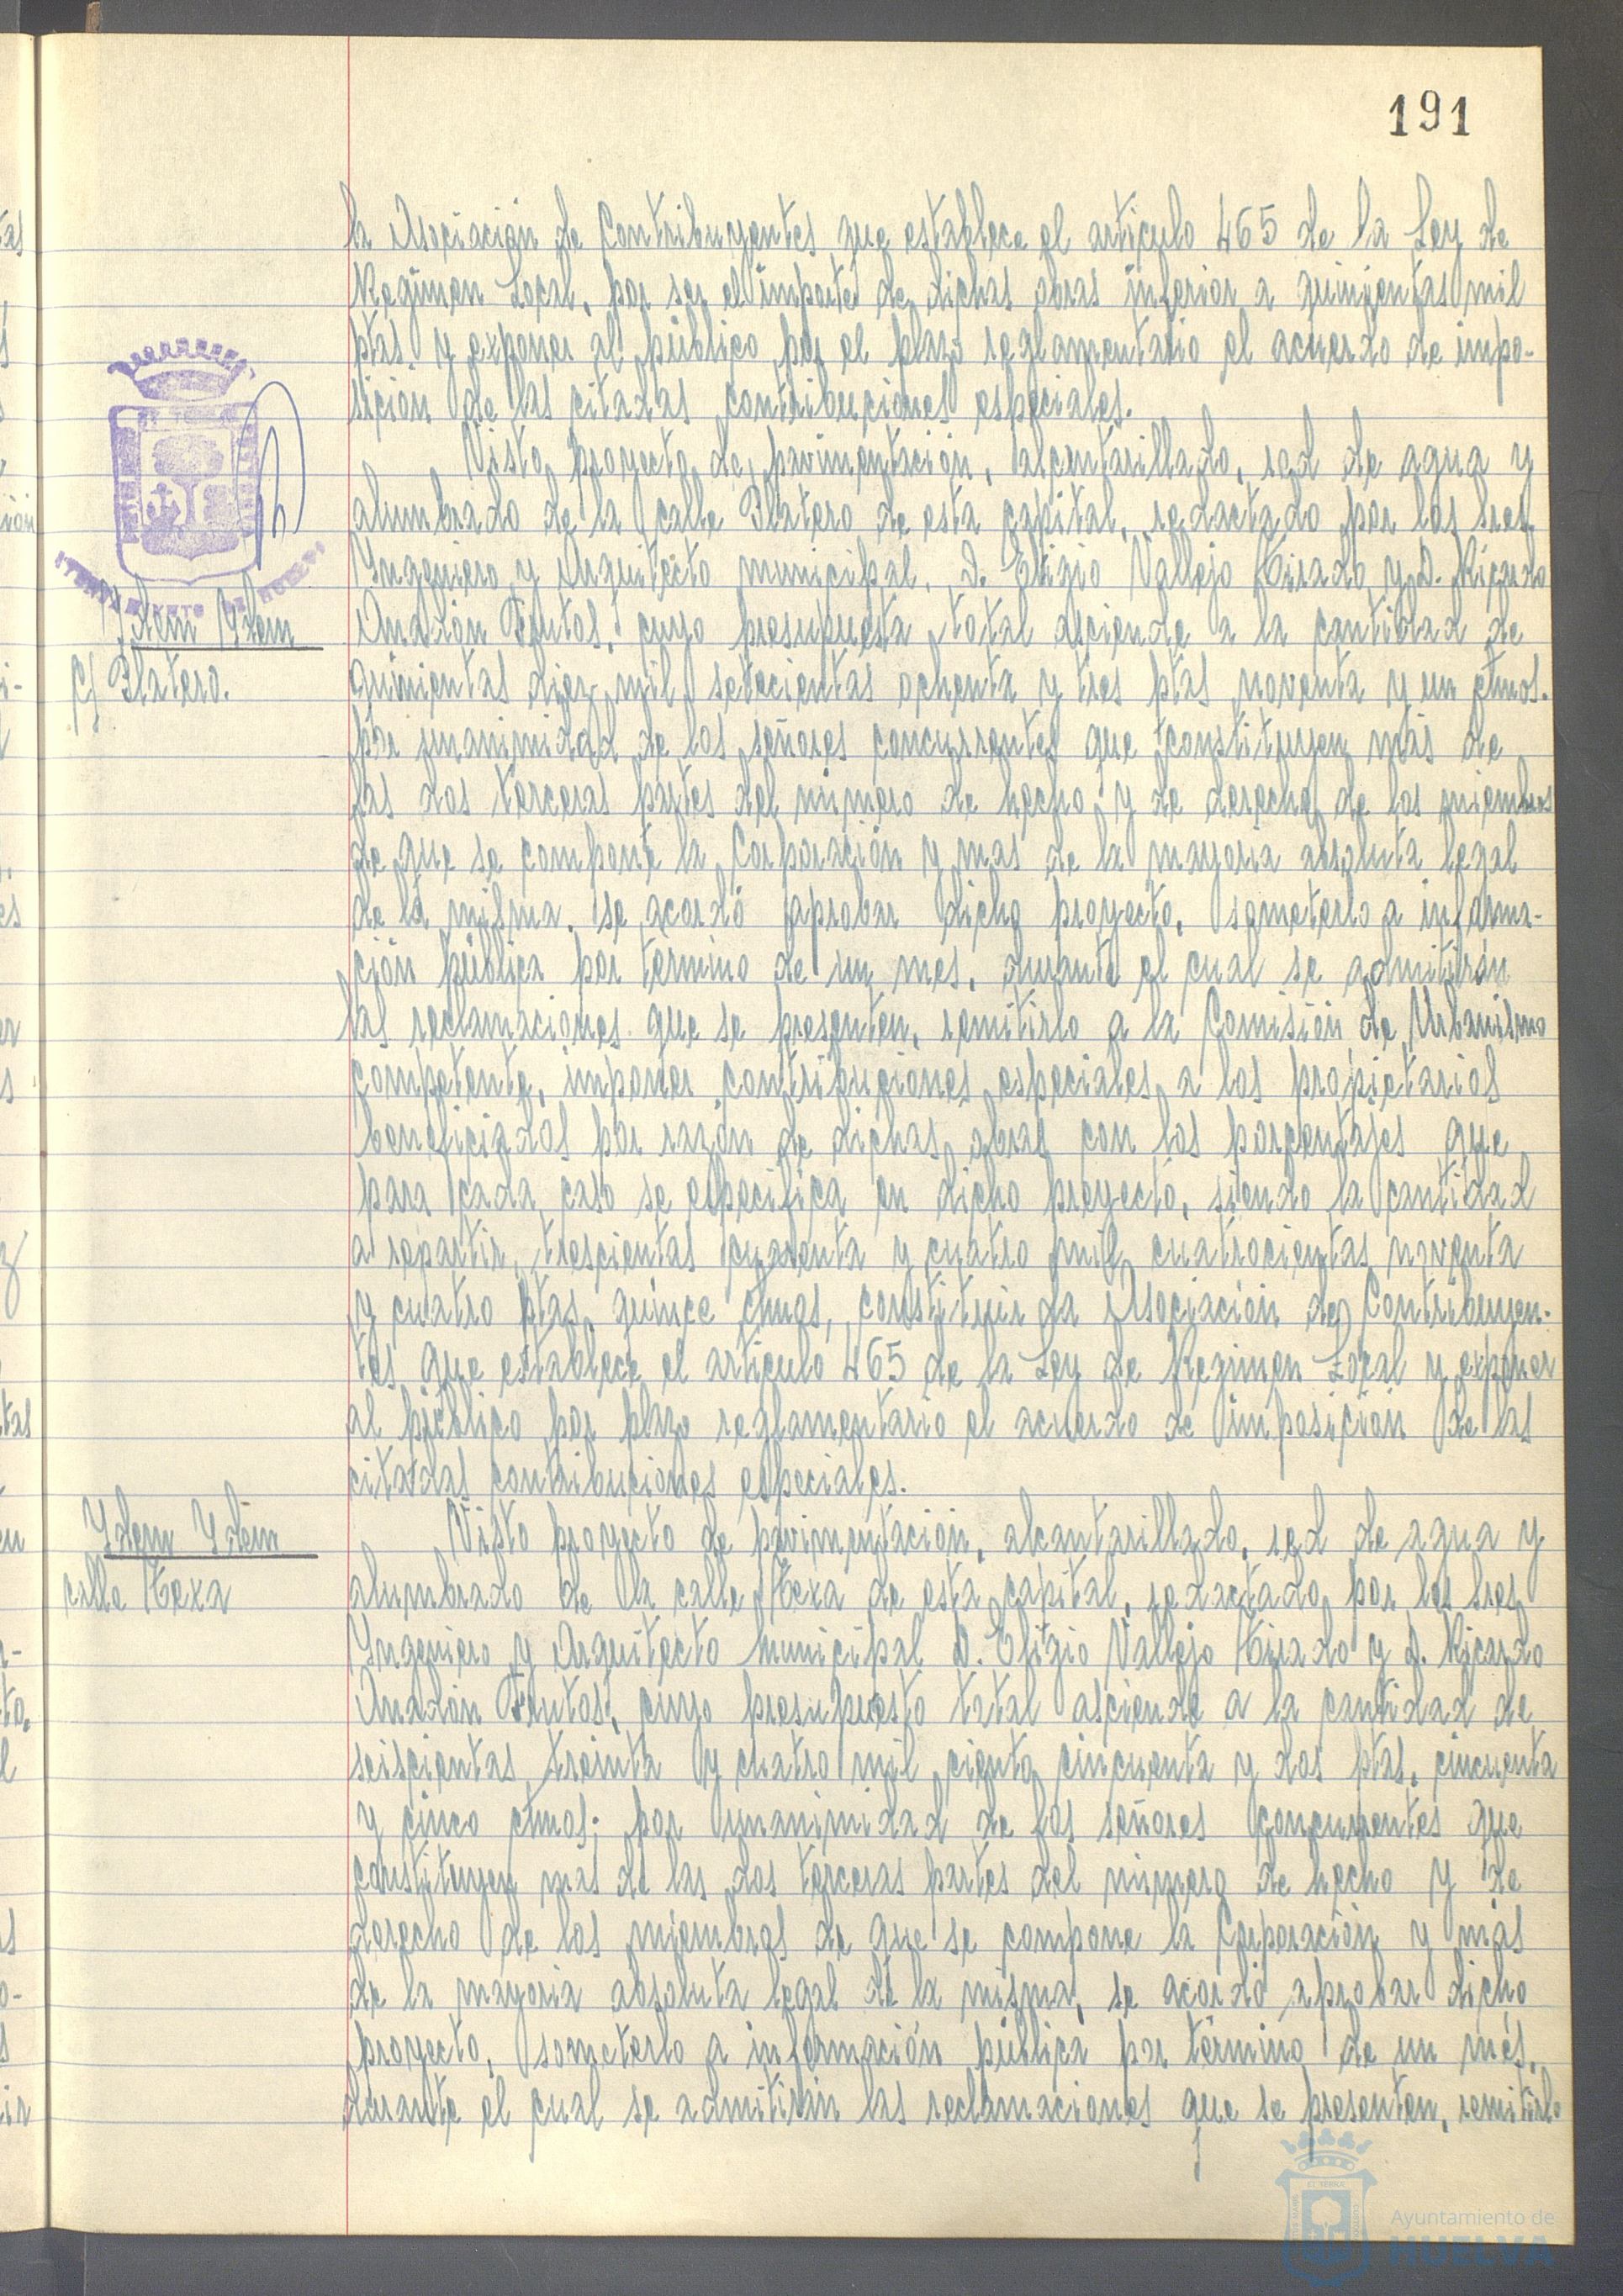 191
la Asociación de Contribuyentes que establece el artículo 465 de la Ley de
Regimen Local, por ser el importe de dichas obras inferior a quinientas mil
ptas. y exponer al público por el plazo reglamentario el acuerdo de impo-
sición de las citadas contribuciones especiales.
Visto proyecto de pavimentación, alcantarillado, red de agua y
alumbrado de la calle Platero de esta capital, redactado por los sres
Ingeniero y Arquitecto municipal, D. Eligio Vallejo Tirado y D. Ricardo
Ytem Ytem
Anadón Frutos, cuyo presupuesto total asciende a la cantidad de
c/ Platero.
quinientas diez mil setecientas ochenta y tres ptas noventa y un ctmos.
por unanimidad de los señores concurrentes que constituyen más de
las dos terceras partes del número de hecho y de derecho de los miembros
de que se compone la Corporación y mas de la mayoría absoluta legal
de la misma, se acordó aprobar dicho proyecto, someterlo a informa-
ción pública por término de un mes, durante el cual se admitirán
las reclamaciones que se presenten, remitirlo a la Comisión de Urbanismo
competente, imponer contribuciones especiales a los propietarios
beneficiados por razón de dichas obras con los porcentajes que
para cada caso se especifica en dicho proyecto, siendo la cantidad
a repartir, trescientas cuarenta y cuatro mil cuatrocientas noventa
y cuatro ptas. quince ctmos, constituir la Asociación de Contribuyen-
tes que establece el artículo 465 de la Ley de Regimen Local y exponer
al público por plazo reglamentario el acuerdo de imposición de las
citadas contribuciones especiales.
Ytem Ytem
Visto proyecto de pavimentación, alcantarillado, red de agua y
calle Texa
alumbrado de la calle Texa de esta capital, redactado por los sres
Ingeniero y Arquitecto Municipal D. Eligio Vallejo Tirado y D. Ricardo
Anadón Frutos, cuyo presupuesto total asciende a la cantidad de
seiscientas treinta y cuatro mil ciento cincuenta y dos ptas. cincuenta
y cinco ctmos; por unanimidad de los señores concurrentes que
constituyen más de las dos terceras partes del número de hecho y de
derecho de los miembros de que se compone la Corporación y más
de la mayoría absoluta legal de la misma, se acordó aprobar dicho
proyecto, someterlo a información pública por término de un més,
durante el cual se admitirán las reclamaciones que se presenten, remitirlo
Ayuntamiento de
HUELVA